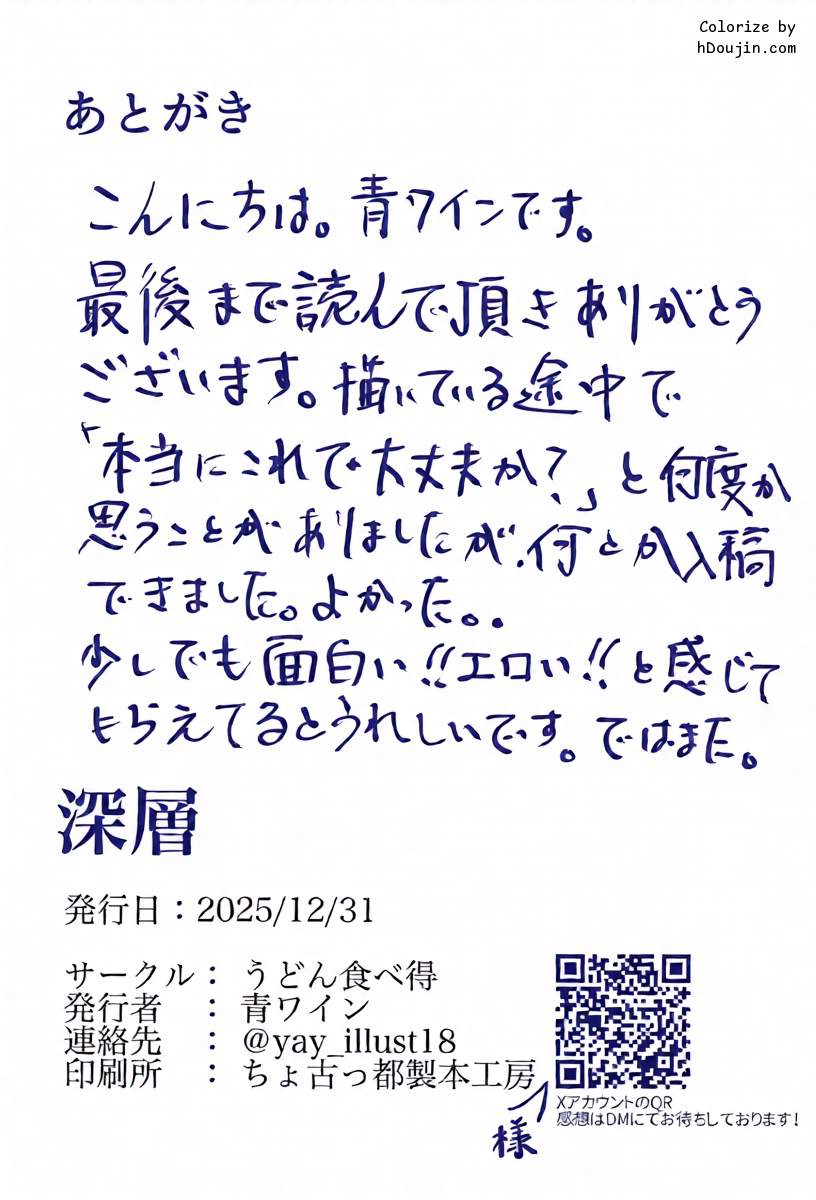 Colorize by
hDoujin.com
あとがき
こんにちは。青ワインです。
最後まで読んで頂きありがとう
ございます。描いている途中で
「本当にこれで大丈夫か?」と何度か
思うことがありましたが、何とか入稿
できました。よかった。。
少しでも面白い!!エロい!!と感じて
もらえてるとうれしいです。ではまた。
深層
発行日：2025/12/31
サークル： うどん食べ得
発行者 ： 青ワイン
連絡先 ： @yay_illust18
印刷所 ： ちょ古っ都製本工房
様
XアカウントのQR
感想はDMにてお待ちしております!